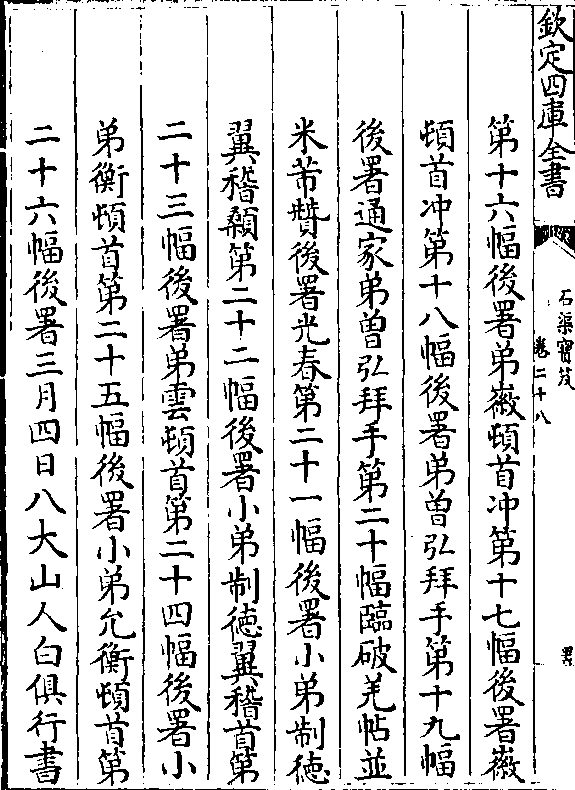 欽定四庫全書
石渠寶笈
卷二十八
第十六幅後署弟薇頓首冲第十七幅後署薇
頓首冲第十八幅後署弟曾弘拜手第十九幅
後署通家弟曾弘拜手第二十幅臨破羌帖並
米芾贊後署光春第二十一幅後署小弟制德
翼稽顙第二十二幅後署小弟制德翼稽首第
二十三幅後署弟雲頓首第二十四幅後署小
弟衡頓首第二十五幅後署小弟允衡頓首第
二十六幅後署三月四日八大山人白俱行書